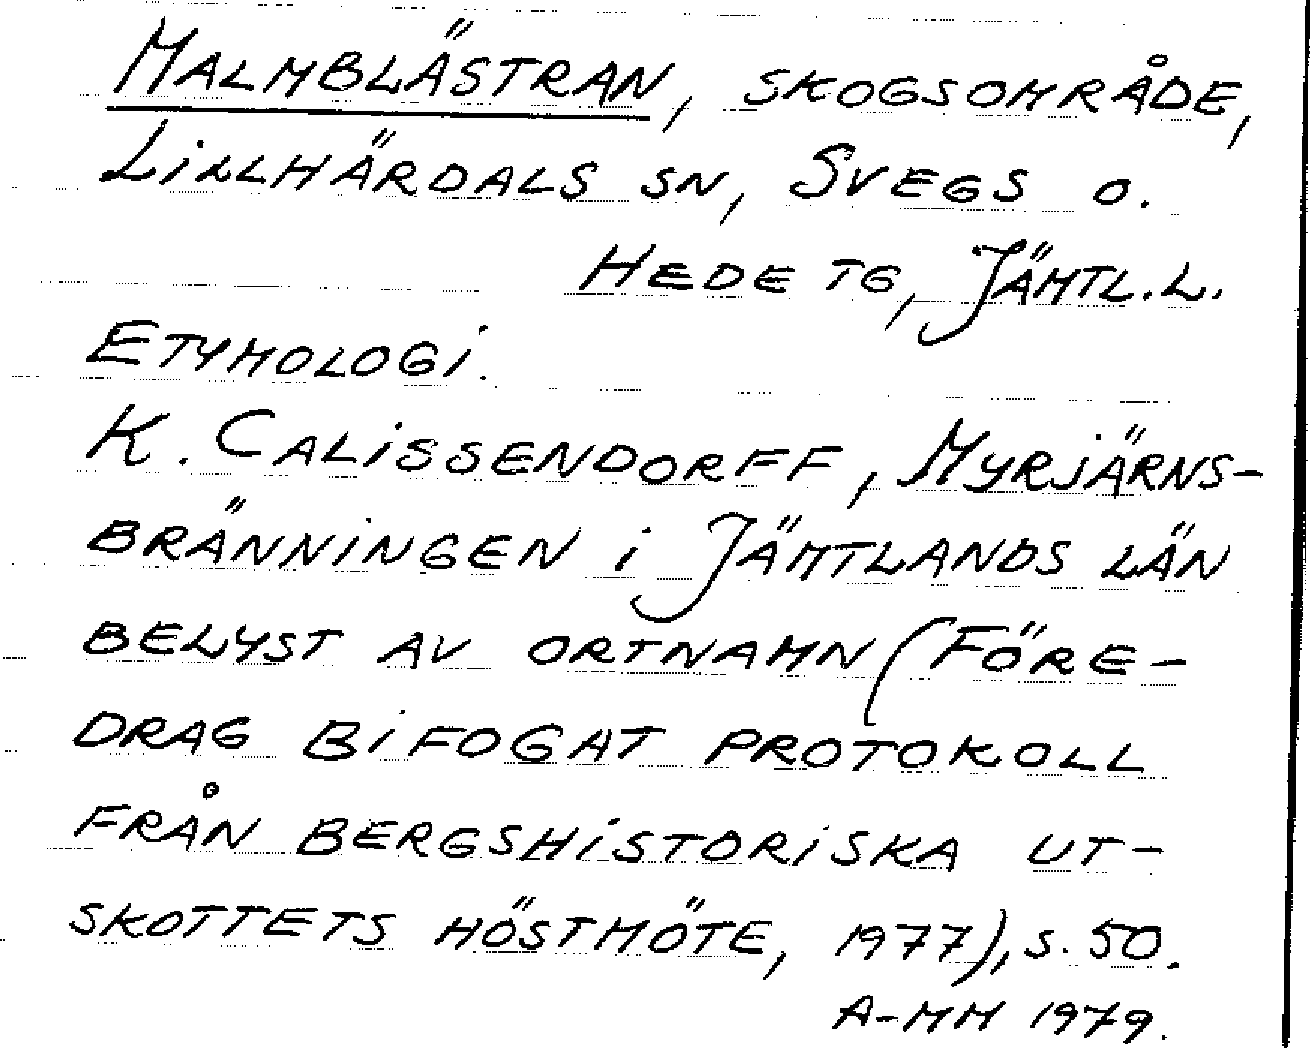 MALMBLÄSTRAN, SKOGSOMRÅDE,
LILLHÄRDALS SN, SVEGS O.
HEDE TG, JÄMTL.L.
ETYMOLOGI.
K. CALISSENDORFF, MYRJÄRNS-
BRÄNNINGEN I JÄMTLANDS LÄN
BELYST AV ORTNAMN (FÖRE-
DRAG BIFOGAT PROTOKOLL
FRÅN BERGSHISTORISKA UT-
SKOTTETS HÖSTMÖTE, 1977), S. 50.
A-MM 1979.